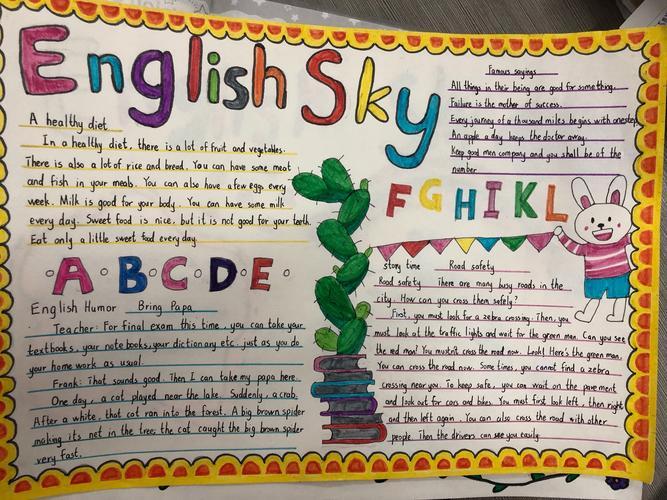 English Sky
A healthy diet
In a healthy diet, there is a lot of fruit and vegetables.
There is also a lot of rice and bread. You can have some meat
and fish in your meals. You can also have a few eggs every
week. Milk is good for your body. You can have some milk
every day. Sweet food is nice, but it is not good for your teeth.
Eat only a little sweet food every day.
A B C D E
English Humor Bring Papa
Teacher: For final exam this time, you can take your
textbooks, your note books, your dictionary etc. just as you do
your home work as usual.
Frank: That sounds good. Then I can take my papa here.
One day, a cat played near the lake. Suddenly, a crab.
After a white, that cat ran into the forest. A big brown spider
making its net in the tree, the cat caught the big brown spider
very fast.
Famous sayings
All things in their being are good for something.
Failure is the mother of success.
Every journey of a thousand miles begins with one step
An apple a day keeps the doctor away.
Keep good men company and you shall be of the
number
F G H I K L
story time Road safety
Road safety There are many busy roads in the
city. How can you cross them safely?
First, you must look for a zebra crossing. Then, you
must look at the traffic lights and wait for the green man. Can you see
the red man? You mustn't cross the road now. Look! Here's the green man.
You can cross the road now. Some times, you cannot find a zebra
crossing near you. To keep safe, you can wait on the pavement
and look out for cars and bikes. You must first look left, then right
and then left again. You can also cross the road with other
people. Then the drivers can see you easily.